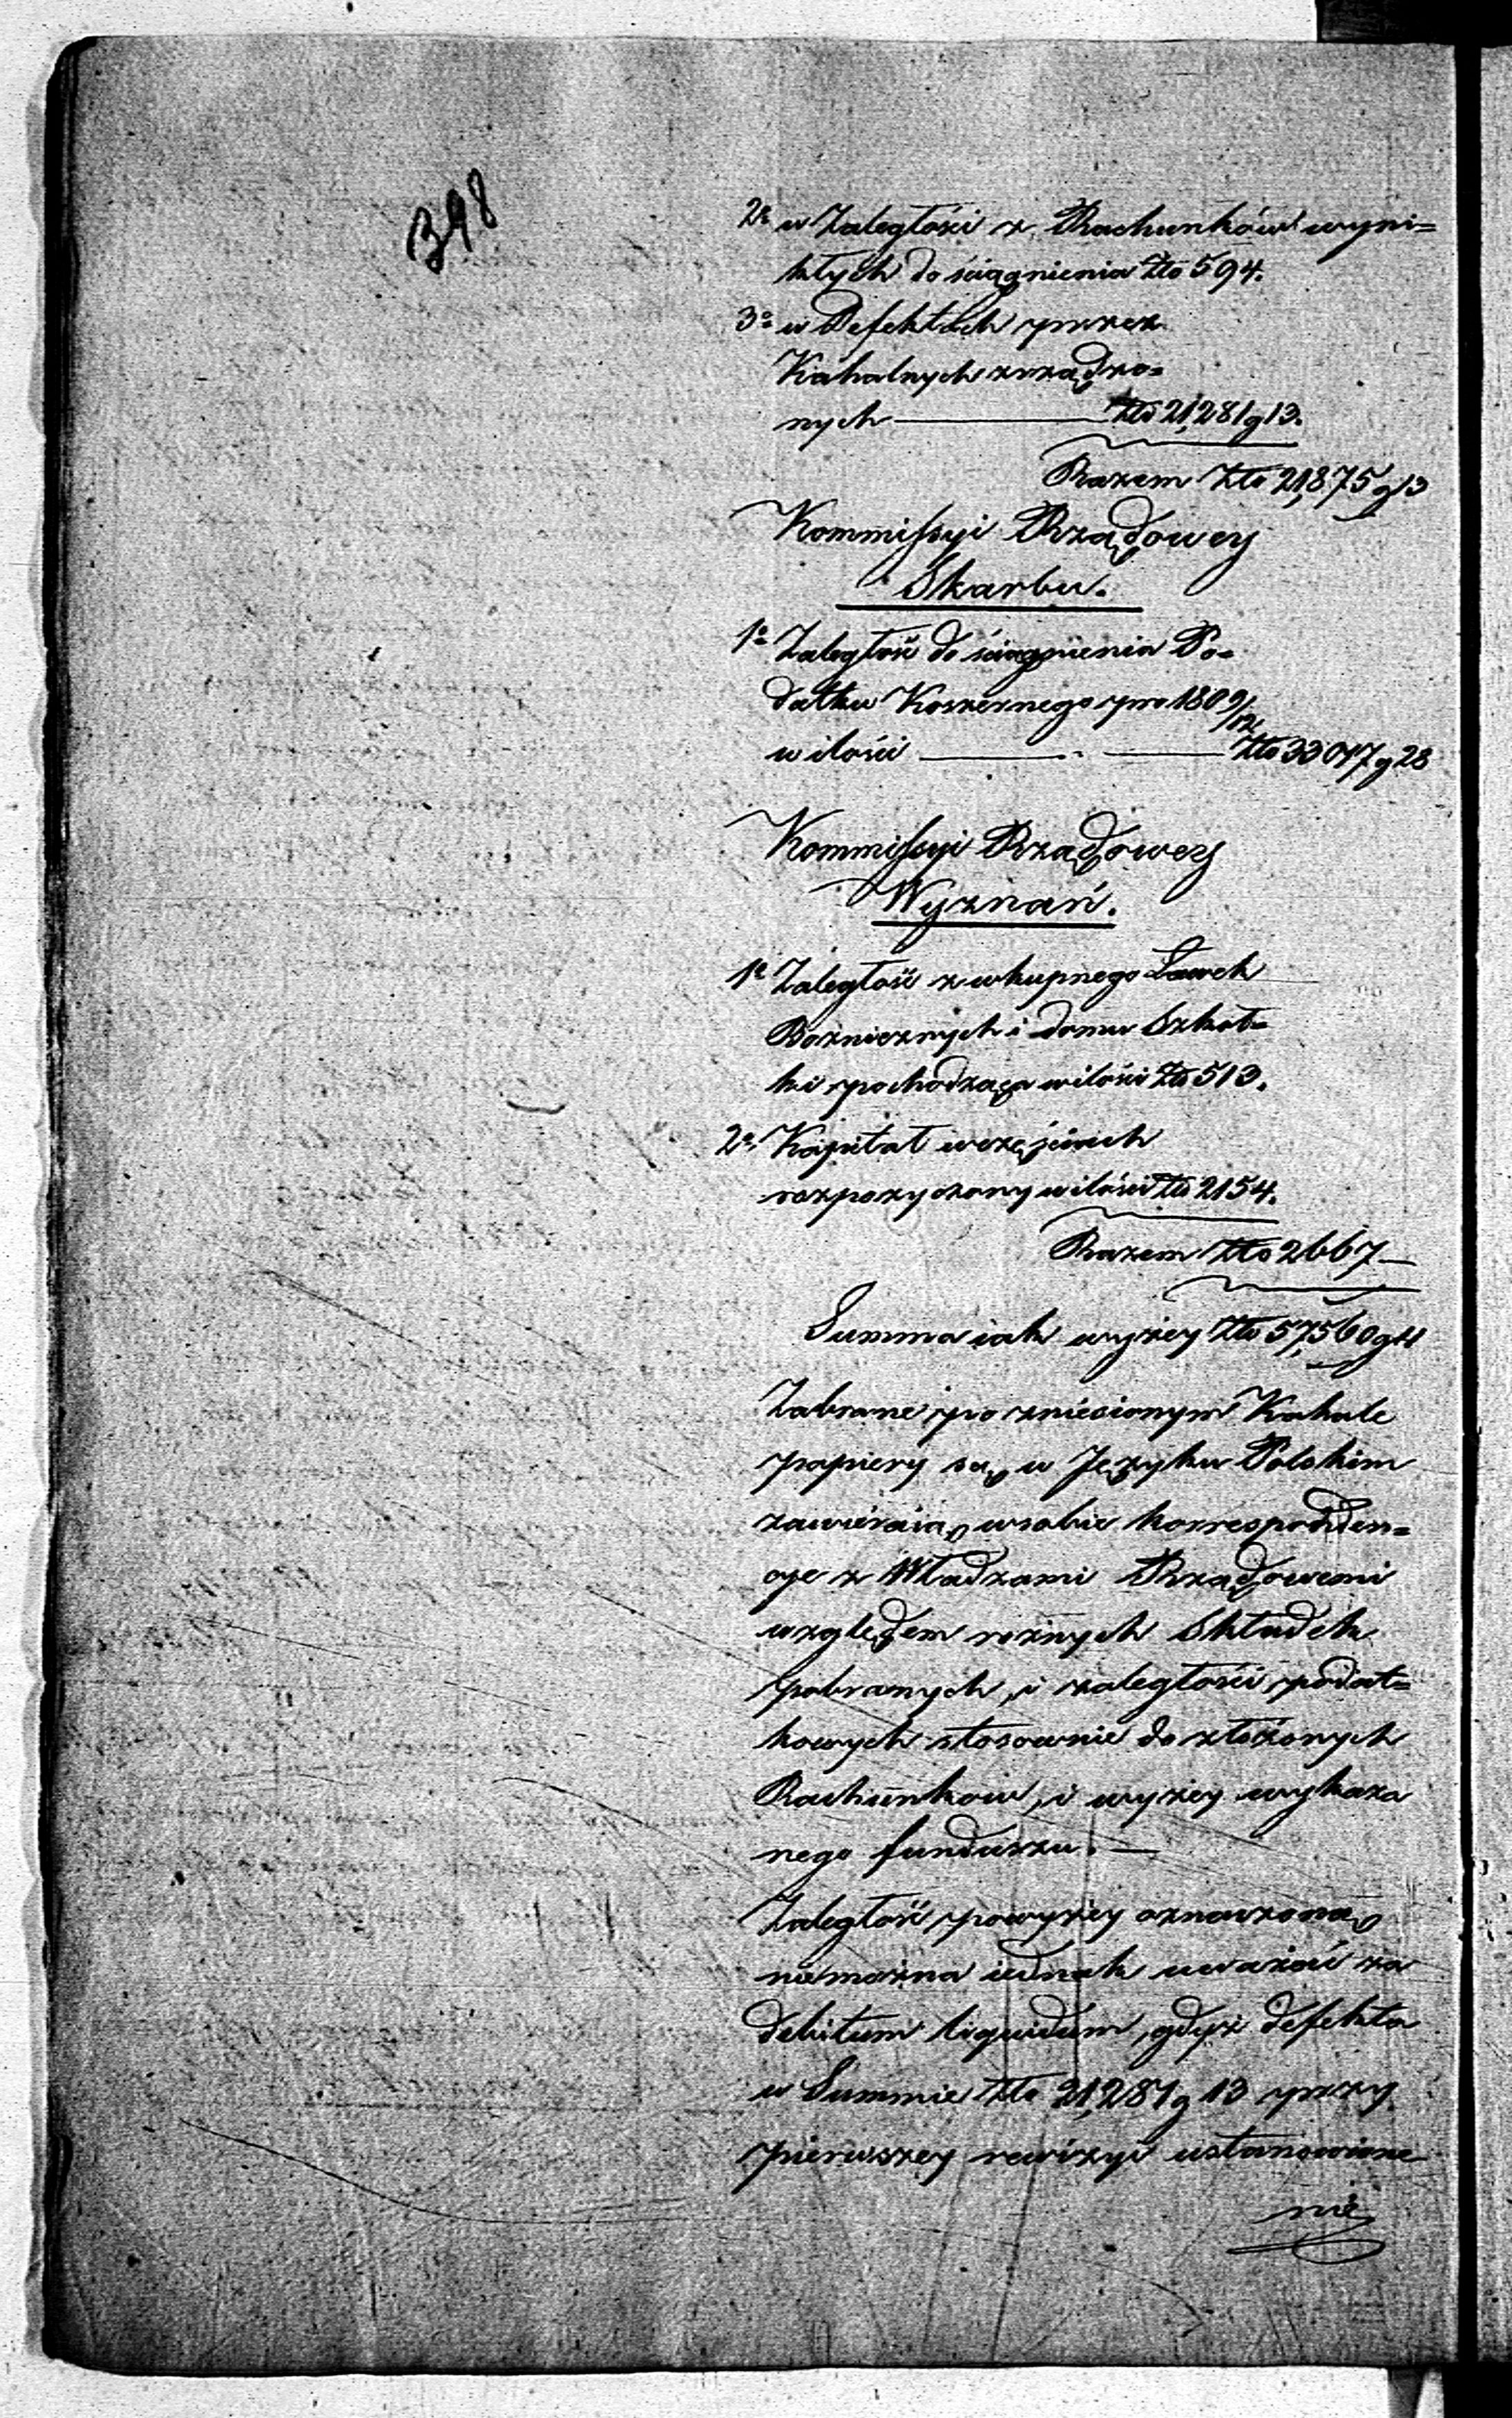 398
2o w Zaległości z Rachunków wyni=
kłych do ściągnienia Złto 594.
3o w Defektach przez
Kahalnych zrządzo=
nych ——— Złto 21,281 g 13.
Razem Złto 21,875 g 13
Kommissyi Rządowey
Skarbu.
1o Zaległość do ściągnienia Po=
datku Koszernego pro 1809/12
w ilości ——— Złto 33017 g 28
Kommissyi Rządowey
Wyznań.
1o Zaległość z wkupnego Ławek
Bożnicznych i domu Szkół=
ki pochodząca w ilości Złto 513.
2o Kapitał w częściach
rozpożyczony w ilości Złto 2154.
Razem Złto 2667 —
Summa iak wyżey Złto 57,560 g 11
Zabrane po zniesionym Kahale
papiery są w Języku Polskim
zawieraią w sobie korresponden=
cye z Władzami Rządowemi
względem rożnych Składek
pobranych, i zaległości podat=
kowych stosownie do złożonych
Rachunków, i wyżey wykaza
nego funduszu. —
Zaległość powyżey oznaczoną
niemożna iednak uważać za
debitum liquidum, gdyż defekta
w Summie Złto 21,281 g 13 przy
pierwszey rewizyi ustanowione
nie